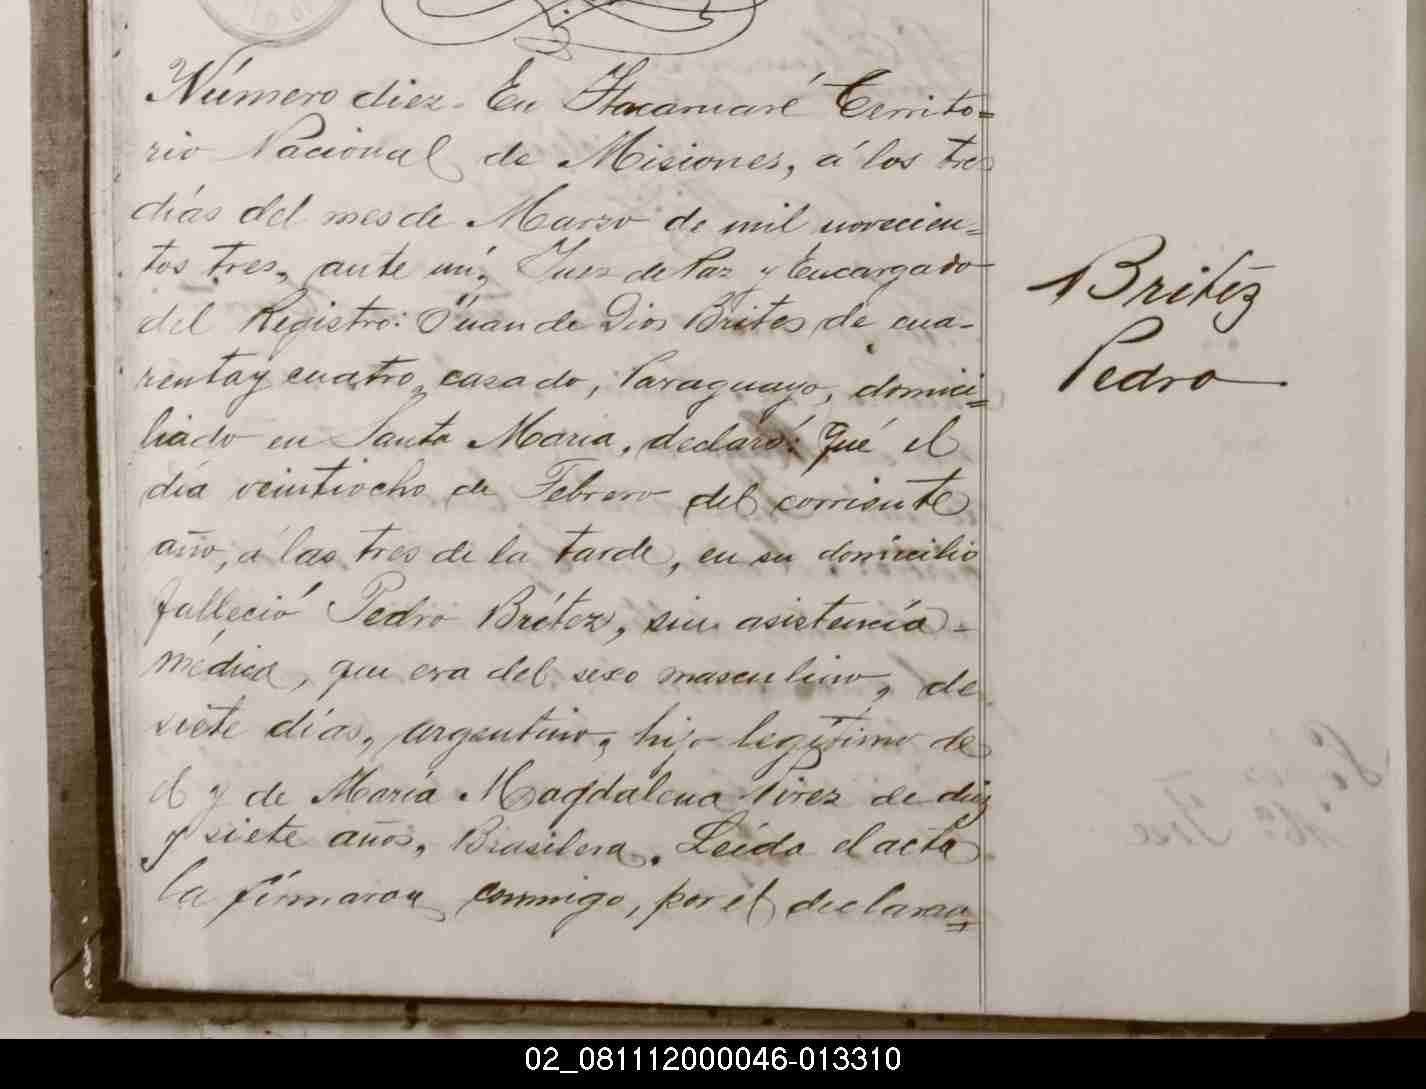 Número diez. En Itacaruaré Territo=
rio Nacional de Misiones, á los tres
días del mes de Marzo de mil novecien=
tos tres, ante mí, Juez de Paz y Encargado
del Registro: Juan de Dios Brites de cua-
renta y cuatro, casado, Paraguayo, domici=
liado en Santa María, declaró: Qué el
día veintiocho de Febrero del corriente
año, á las tres de la tarde, en su domicilio
falleció Pedro Brítez, sin asistencía-
médica, que era del sexo masculino, de
siete días, argentino, hijo legítimo de
él y de María Magdalena Pirez de diez
y siete años, Brasilera. Leída el acta
la firmaron conmigo, por el declaran=
Britéz
Pedro
02_081112000046-013310